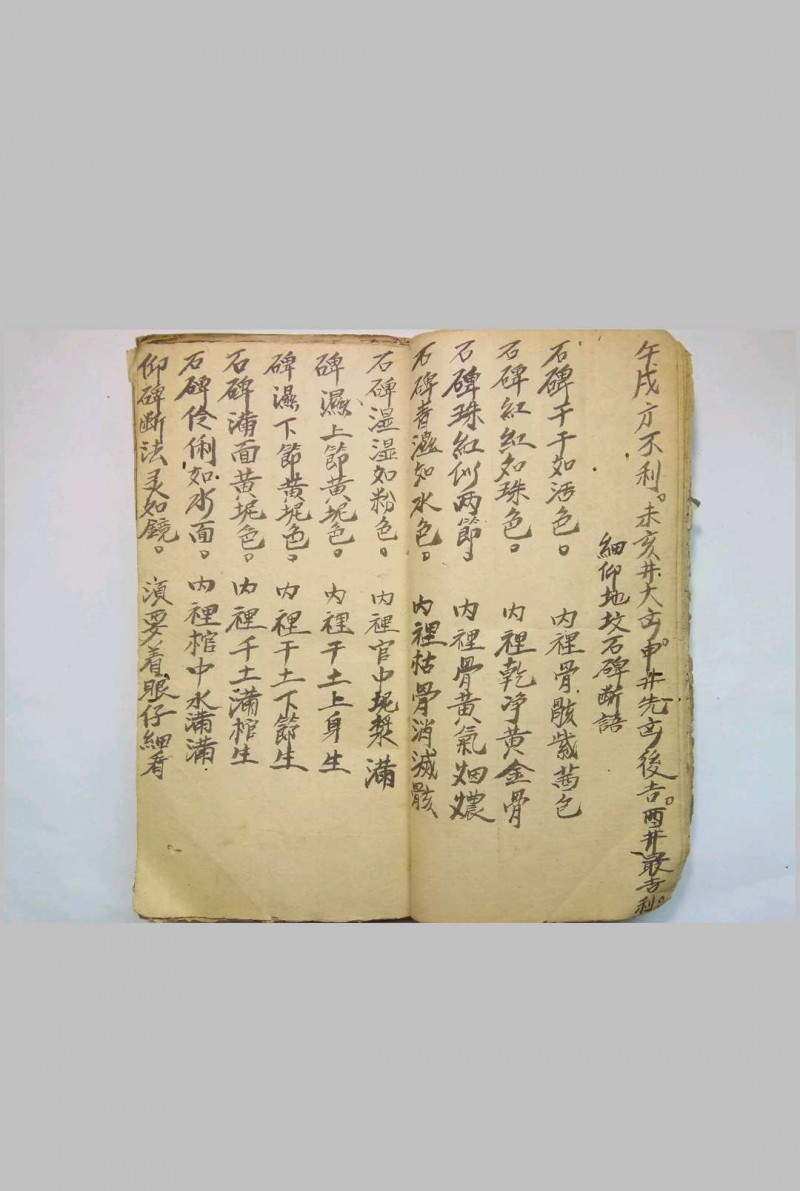 午戌方不利。未亥井大凶。申井先凶後吉。酉井最吉利。
細仰地坟石碑断語
石碑干干如活色。 内裡骨骸紫茜包
石碑紅紅如珠色。 内裡乾净黄金骨
石碑珠紅似两節。 内裡骨黄氣烟㶶
石碑普濕如水色。 内裡枯骨消滅骸
石碑湿湿如粉色。 内裡官中坭漿滿
碑濕上節黄坭色。 内裡干土上身生
碑濕下節黄坭色。 内裡干土下節生
石碑滿面黄坭色。 内裡干土滿棺生
石碑伶俐如水面。 内裡棺中水滿滿
仰碑断法美如鏡。 須要着眼仔細看